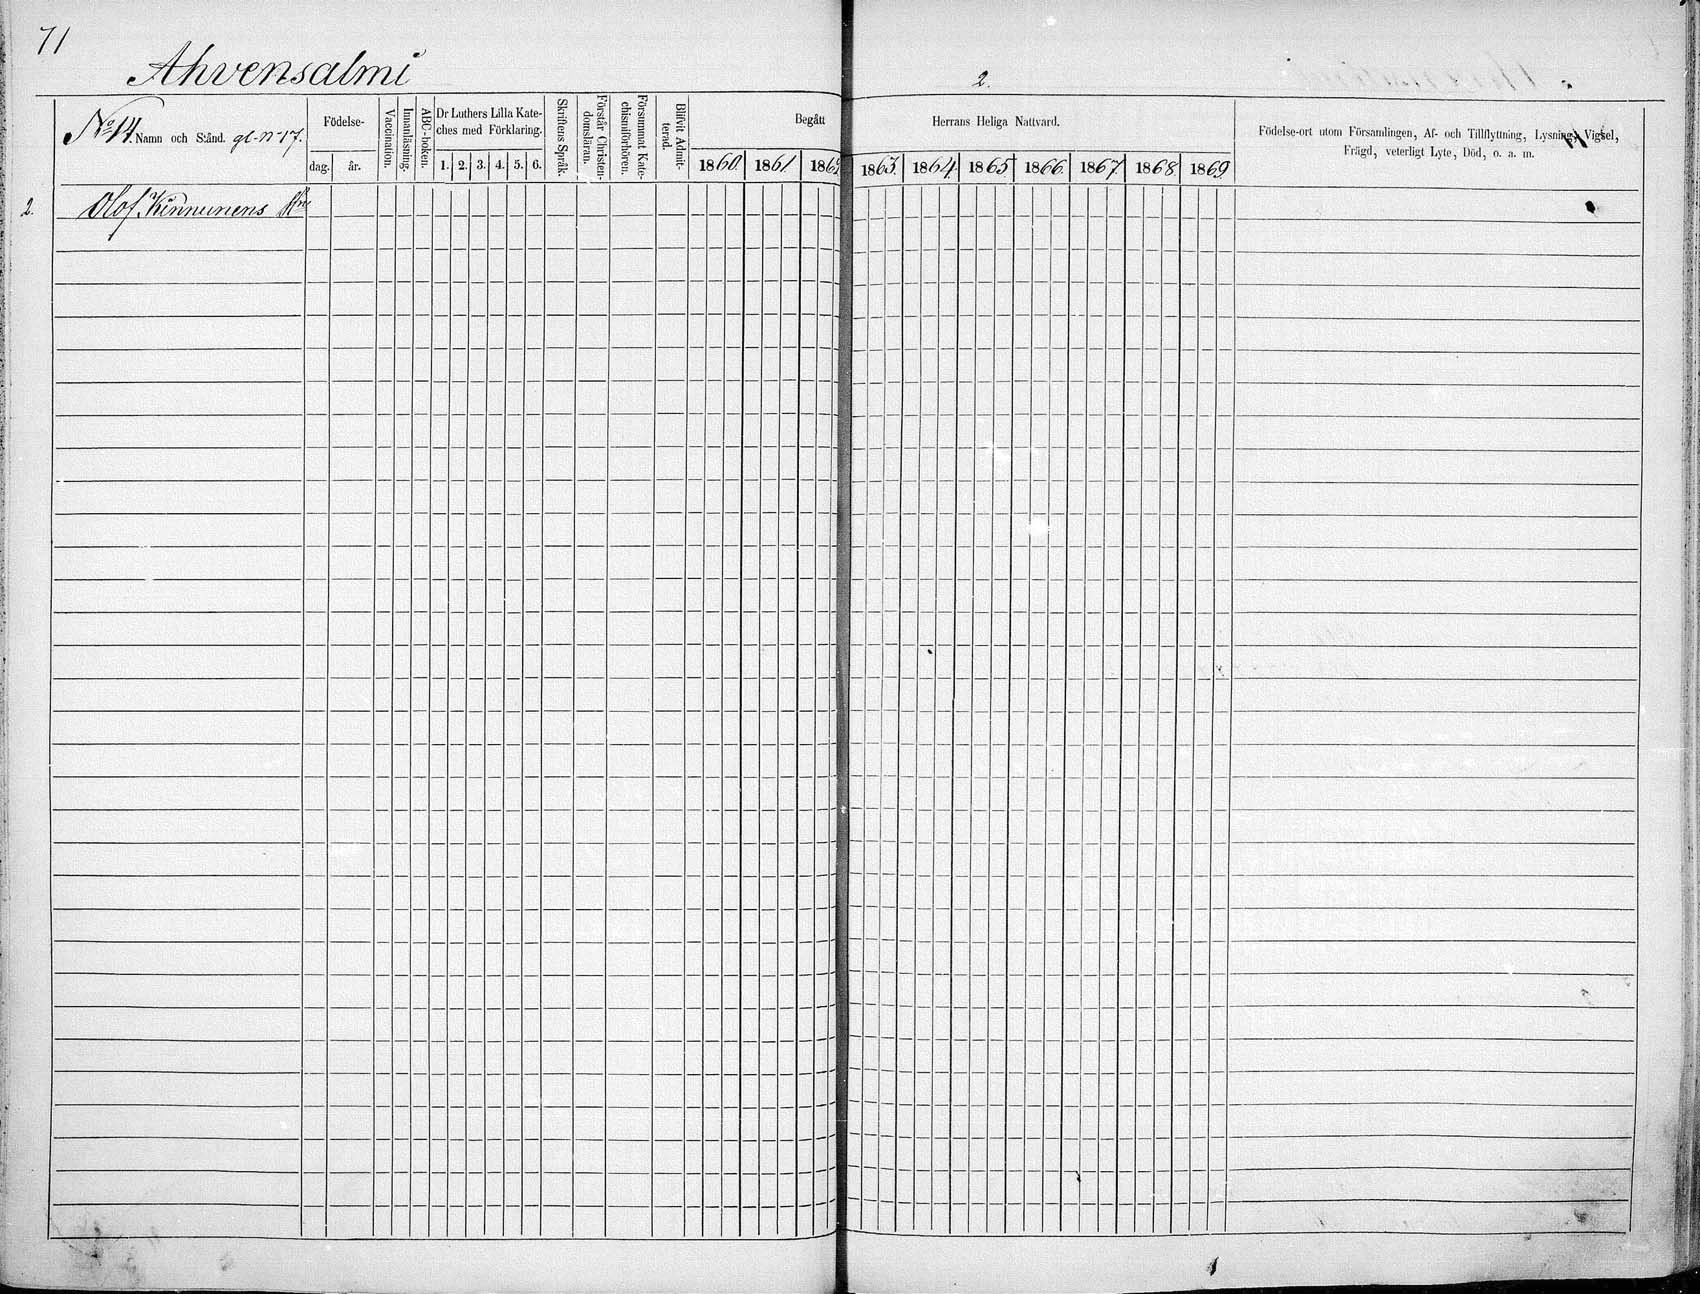 71
Ahvensalmi
2.
No 14. Namn och Stånd. gl. No 17.
Födelse-
dag. år.
Vaccination.
Innanläsning.
ABC-boken.
Dr Luthers Lilla Kate-
ches med Förklaring.
1. 2. 3. 4. 5. 6.
Skriftens Språk.
Förstår Christen-
domsläran.
Försummat Kate-
chismiförhören.
Blifvit Admit-
terad.
Begått
Herrans Heliga Nattvard.
1860. 1861. 1862 1863. 1864. 1865 1866. 1867. 1868. 1869.
Födelse-ort utom Församlingen, Af- och Tillflyttning, Lysning, Vigsel,
Frägd, veterligt Lyte, Död, o. a. m.
2. Olof Kinnunens